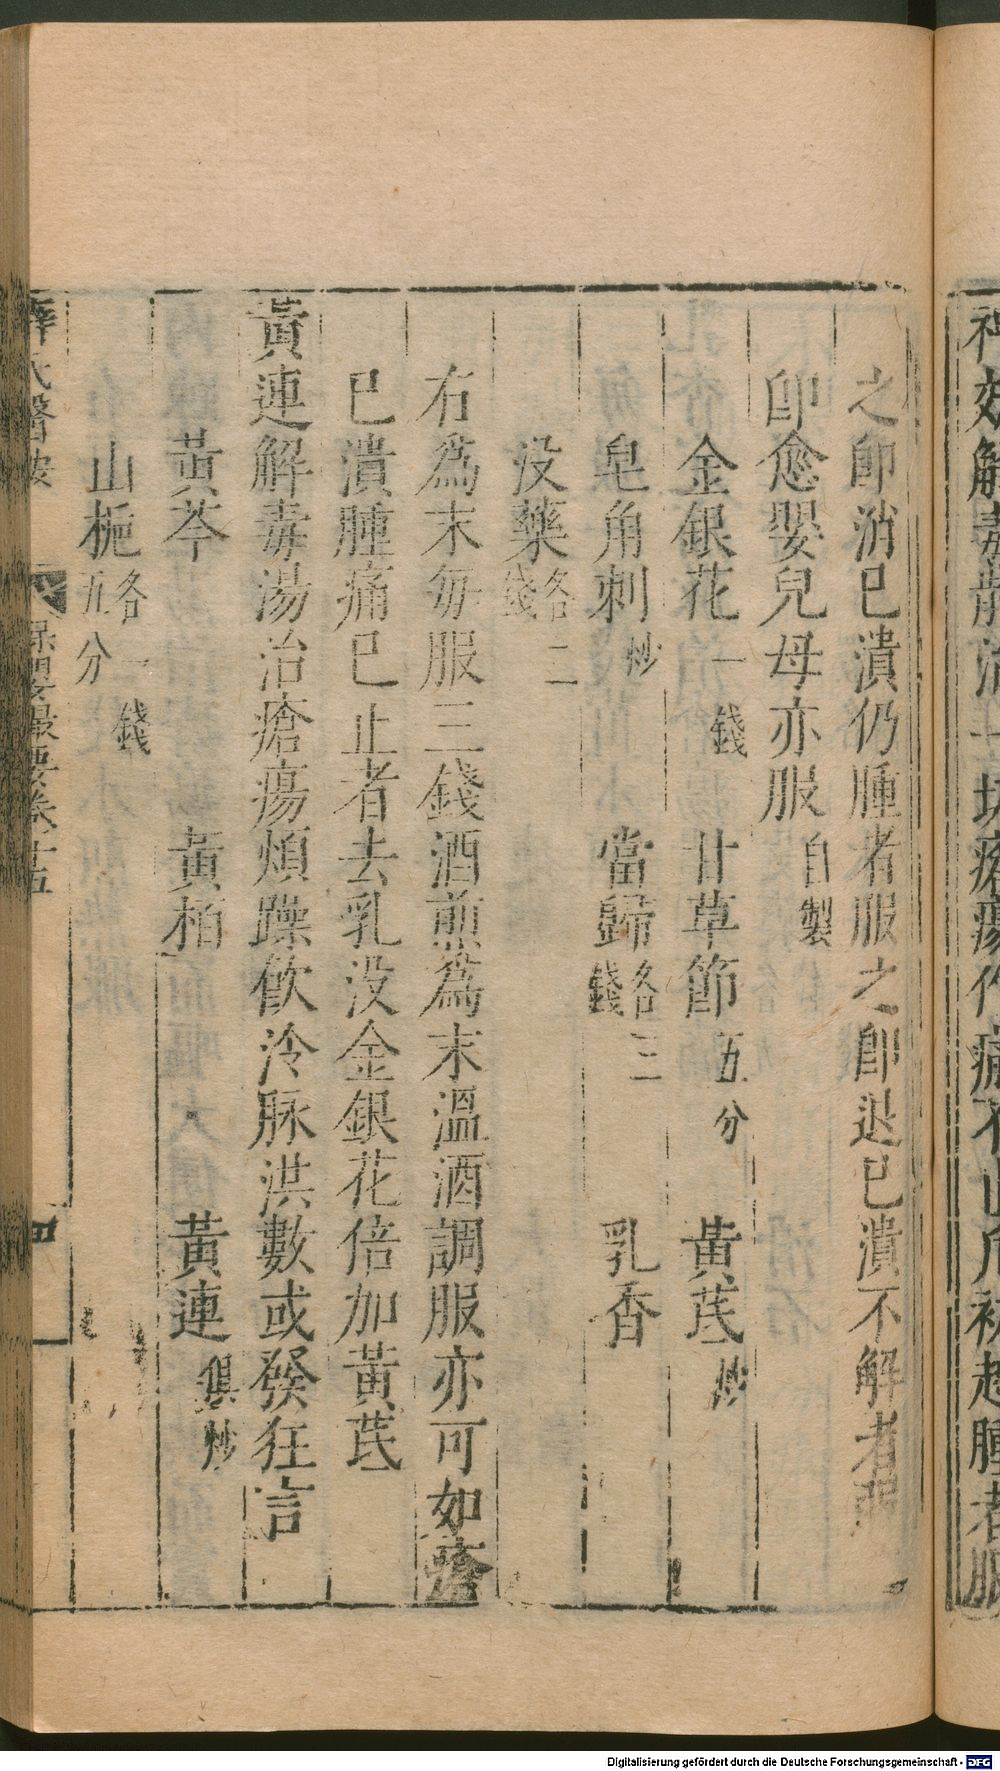 神效解毒散治一切瘡瘍作痛不止凡初起腫者服
之卽消已潰仍腫者服之卽退已潰不解者服
卽愈嬰兒母亦服自製
金銀花一錢 甘草節五分 黃芪炒
皂角刺炒 當歸各三錢 乳香
没藥各二錢
右爲末每服三錢酒煎爲末溫酒調服亦可如瘡
已潰腫痛已止者去乳没金銀花倍加黃芪
黃連解毒湯治瘡瘍煩躁飲冷脉洪數或發狂言
黃芩 黃柏 黃連俱炒
山梔各一錢五分
薛氏醫按 保嬰撮要卷十五 四
Digitalisierung gefördert durch die Deutsche Forschungsgemeinschaft - DFG